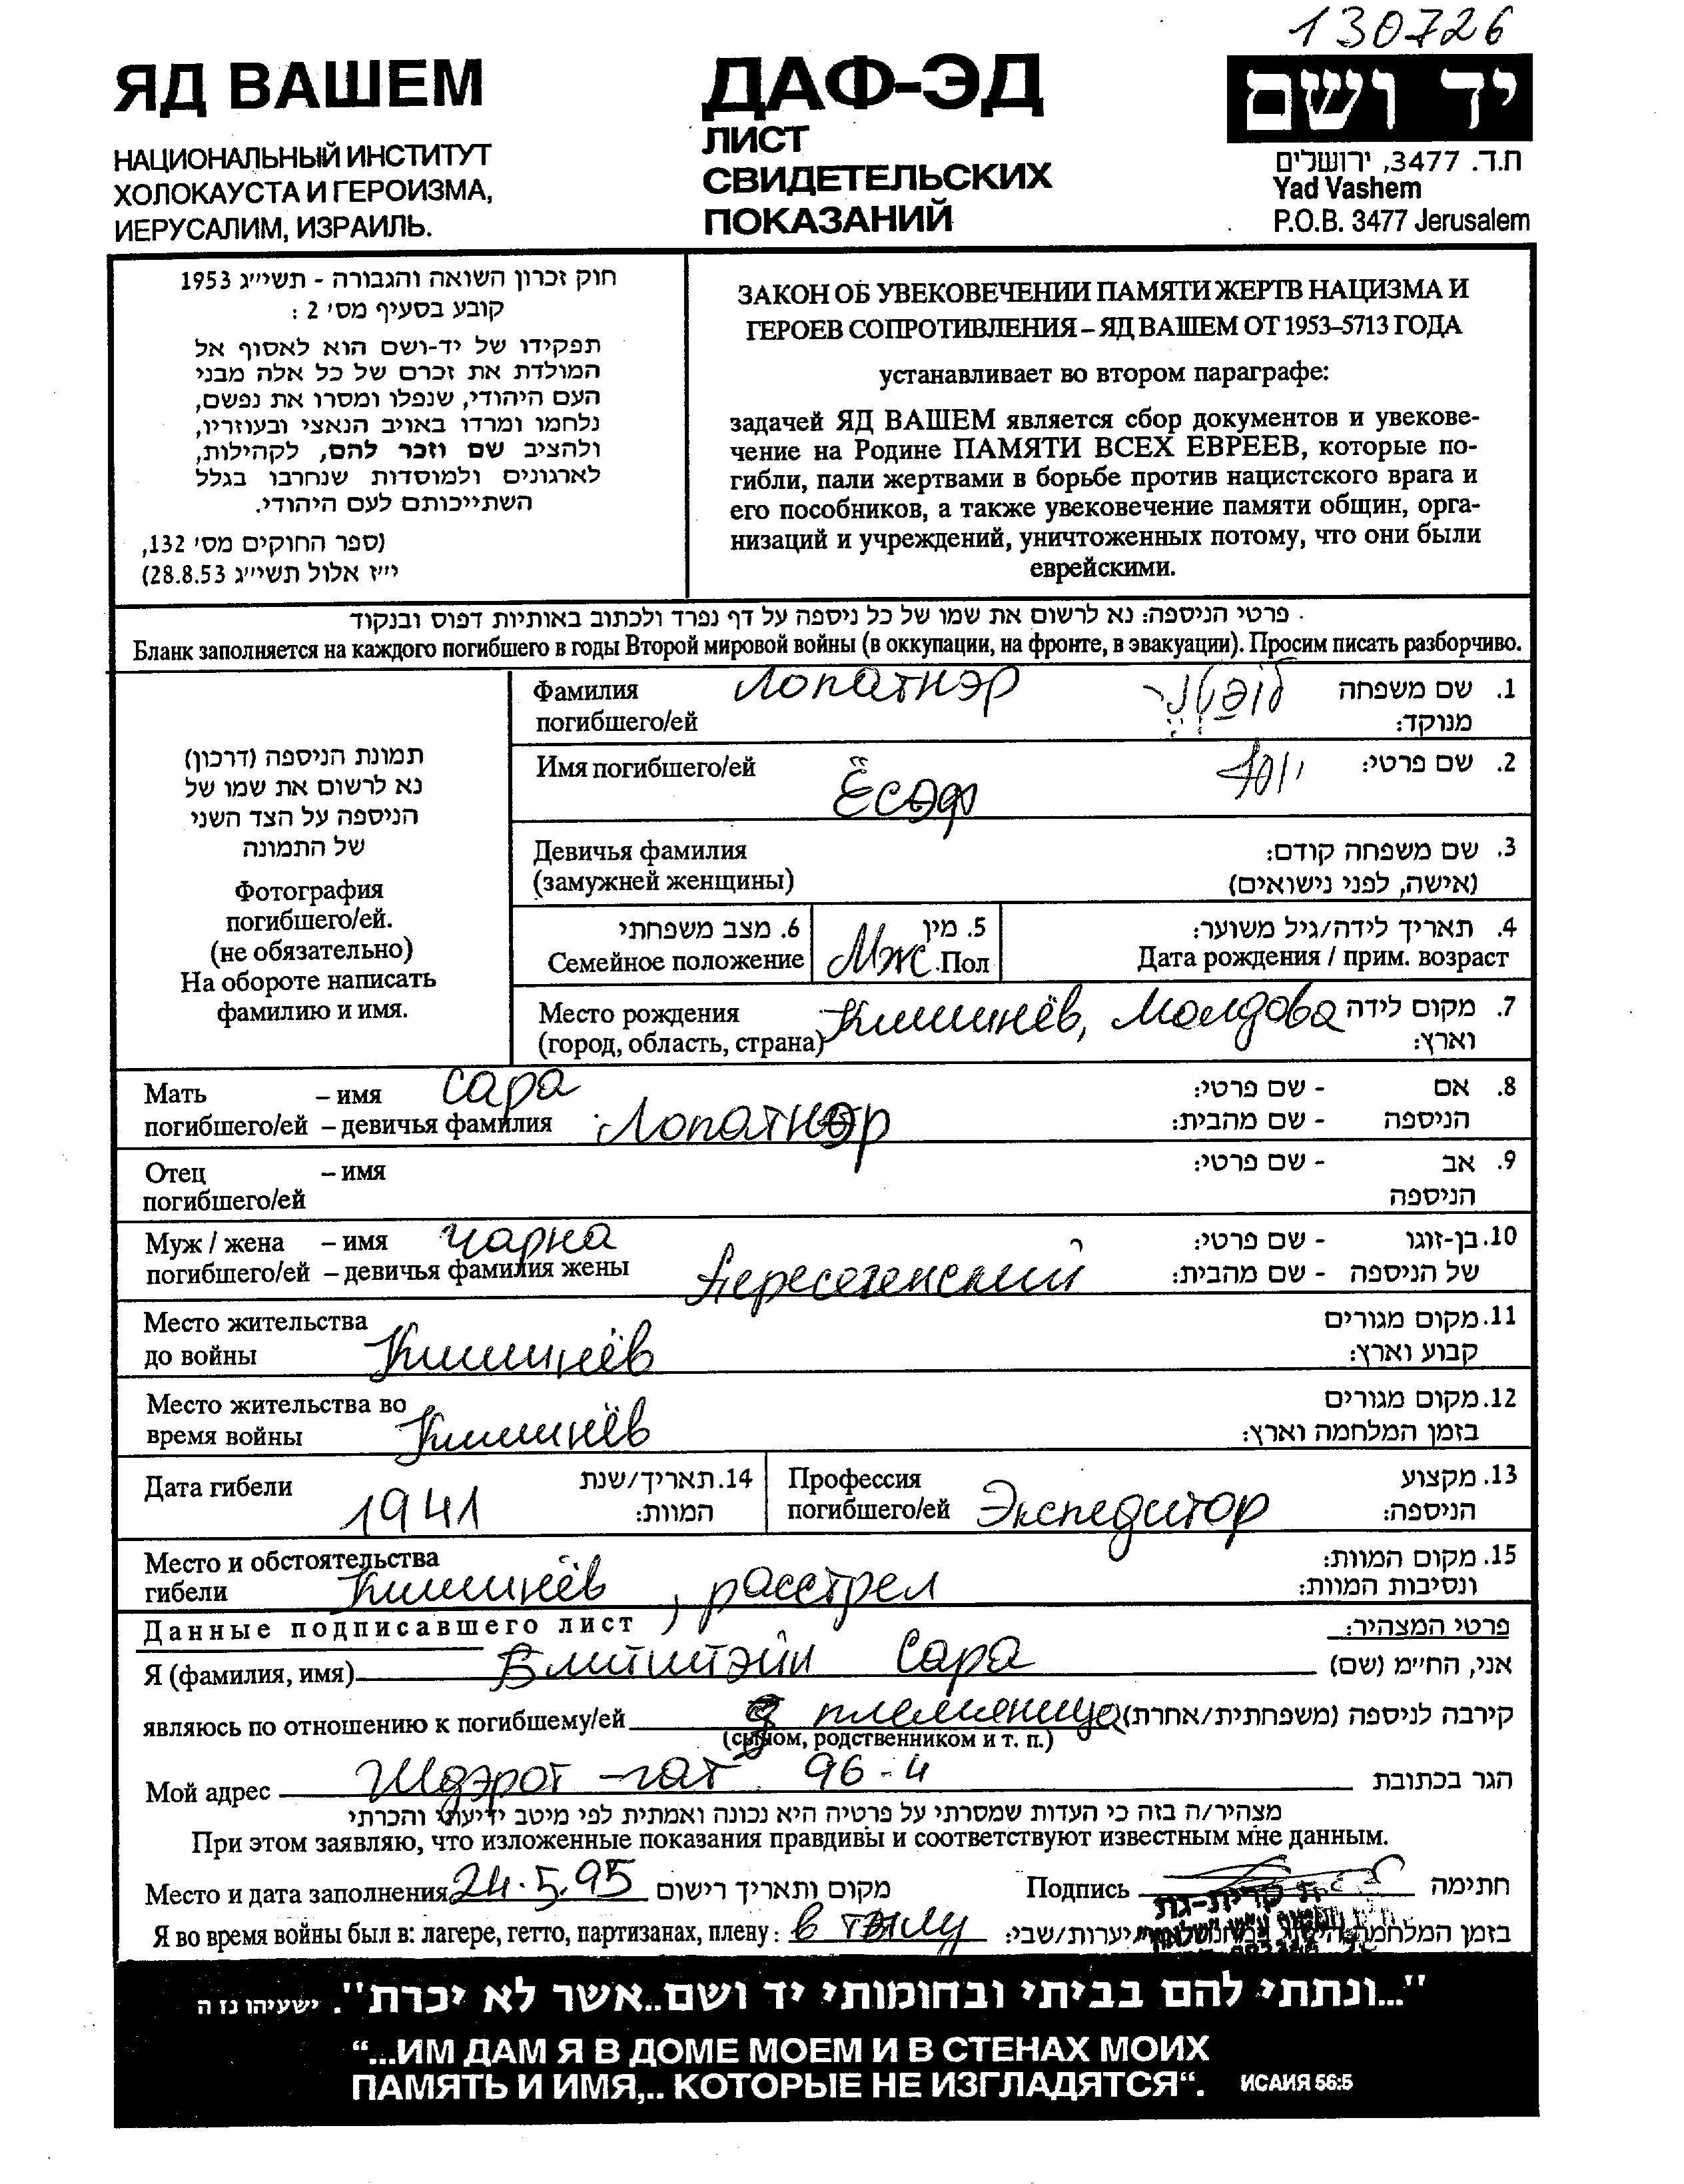 130726
ЯД ВАШЕМ
НАЦИОНАЛЬНЫЙ ИНСТИТУТ
ХОЛОКАУСТА И ГЕРОИЗМА,
ИЕРУСАЛИМ, ИЗРАИЛЬ.
ДАФ-ЭД
ЛИСТ
СВИДЕТЕЛЬСКИХ
ПОКАЗАНИЙ
יד ושם
ת.ד. 3477, ירושלים
Yad Vashem
P.O.B. 3477 Jerusalem
חוק זכרון השואה והגבורה - תשי״ג 1953
קובע בסעיף מס׳ 2 :
תפקידו של יד-ושם הוא לאסוף אל
המולדת את זכרם של כל אלה מבני
העם היהודי, שנפלו ומסרו את נפשם,
נלחמו ומרדו באויב הנאצי ובעוזריו,
ולהציב שם וזכר להם, לקהילות,
לארגונים ולמוסדות שנחרבו בגלל
השתייכותם לעם היהודי.
(ספר החוקים מס׳ 132,
י״ז אלול תשי״ג 28.8.53)
ЗАКОН ОБ УВЕКОВЕЧЕНИИ ПАМЯТИ ЖЕРТВ НАЦИЗМА И
ГЕРОЕВ СОПРОТИВЛЕНИЯ – ЯД ВАШЕМ ОТ 1953–5713 ГОДА
устанавливает во втором параграфе:
задачей ЯД ВАШЕМ является сбор документов и увекове-
чение на Родине ПАМЯТИ ВСЕХ ЕВРЕЕВ, которые по-
гибли, пали жертвами в борьбе против нацистского врага и
его пособников, а также увековечение памяти общин, орга-
низаций и учреждений, уничтоженных потому, что они были
еврейскими.
פרטי הניספה: נא לרשום את שמו של כל ניספה על דף נפרד ולכתוב באותיות דפוס ובנקוד
Бланк заполняется на каждого погибшего в годы Второй мировой войны (в оккупации, на фронте, в эвакуации). Просим писать разборчиво.
תמונת הניספה (דרכון)
נא לרשום את שמו של
הניספה על הצד השני
של התמונה
Фотография
погибшего/ей.
(не обязательно)
На обороте написать
фамилию и имя.
Фамилия Лопатнэр 1. שם משפחה
погибшего/ей מנוקד:
Имя погибшего/ей Ёсэф יוסף 2. שם פרטי:
Девичья фамилия 3. שם משפחה קודם:
(замужней женщины) (אישה, לפני נישואים)
6. מצב משפחתי 5. מין 4. תאריך לידה/גיל משוער:
Семейное положение Мж. Пол Дата рождения / прим. возраст
Место рождения Кишинёв, Молдова 7. מקום לידה
(город, область, страна) וארץ:
Мать – имя Сара - שם פרטי: 8. אם
погибшего/ей – девичья фамилия Лопатнэр - שם מהבית: הניספה
Отец – имя - שם פרטי: 9. אב
погибшего/ей הניספה
Муж / жена – имя Чарна - שם פרטי: 10. בן-זוגו
погибшего/ей – девичья фамилия жены Пересеченский - שם מהבית: של הניספה
Место жительства 11. מקום מגורים
до войны Кишинёв קבוע וארץ:
Место жительства во 12. מקום מגורים
время войны Кишинёв בזמן המלחמה וארץ:
Дата гибели 1941 14. תאריך/שנת המוות:
Профессия 13. מקצוע
погибшего/ей Экспедитор הניספה:
Место и обстоятельства 15. מקום המוות:
гибели Кишинёв, расстрел ונסיבות המוות:
Данные подписавшего лист פרטי המצהיר:
Я (фамилия, имя) Сара אני, החי״מ (שם)
являюсь по отношению к погибшему/ей племяница קירבה לניספה (משפחתית/אחרת)
(сыном, родственником и т. п.)
Мой адрес Шдэрот-гат 96-4 הגר בכתובת
מצהיר/ה בזה כי העדות שמסרתי על פרטיה היא נכונה ואמתית לפי מיטב ידיעתי והכרתי
При этом заявляю, что изложенные показания правдивы и соответствуют известным мне данным.
Место и дата заполнения 24.5.95 מקום ותאריך רישום Подпись חתימה
קרית-גת
Я во время войны был в: лагере, гетто, партизанах, плену: в тылу יערות/שבי: בזמן המלחמה
"...ונתתי להם בביתי ובחומותי יד ושם..אשר לא יכרת". ישעיהו נז ה
“...ИМ ДАМ Я В ДОМЕ МОЕМ И В СТЕНАХ МОИХ
ПАМЯТЬ И ИМЯ,.. КОТОРЫЕ НЕ ИЗГЛАДЯТСЯ“. ИСАИЯ 56:5